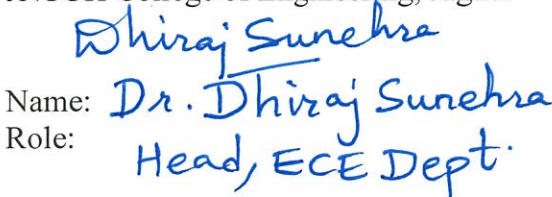 College of Engineering,
Dhiraj Sunehra
Name: Dr. Dhiraj Sunehra
Role:
Head, ECE Dept.